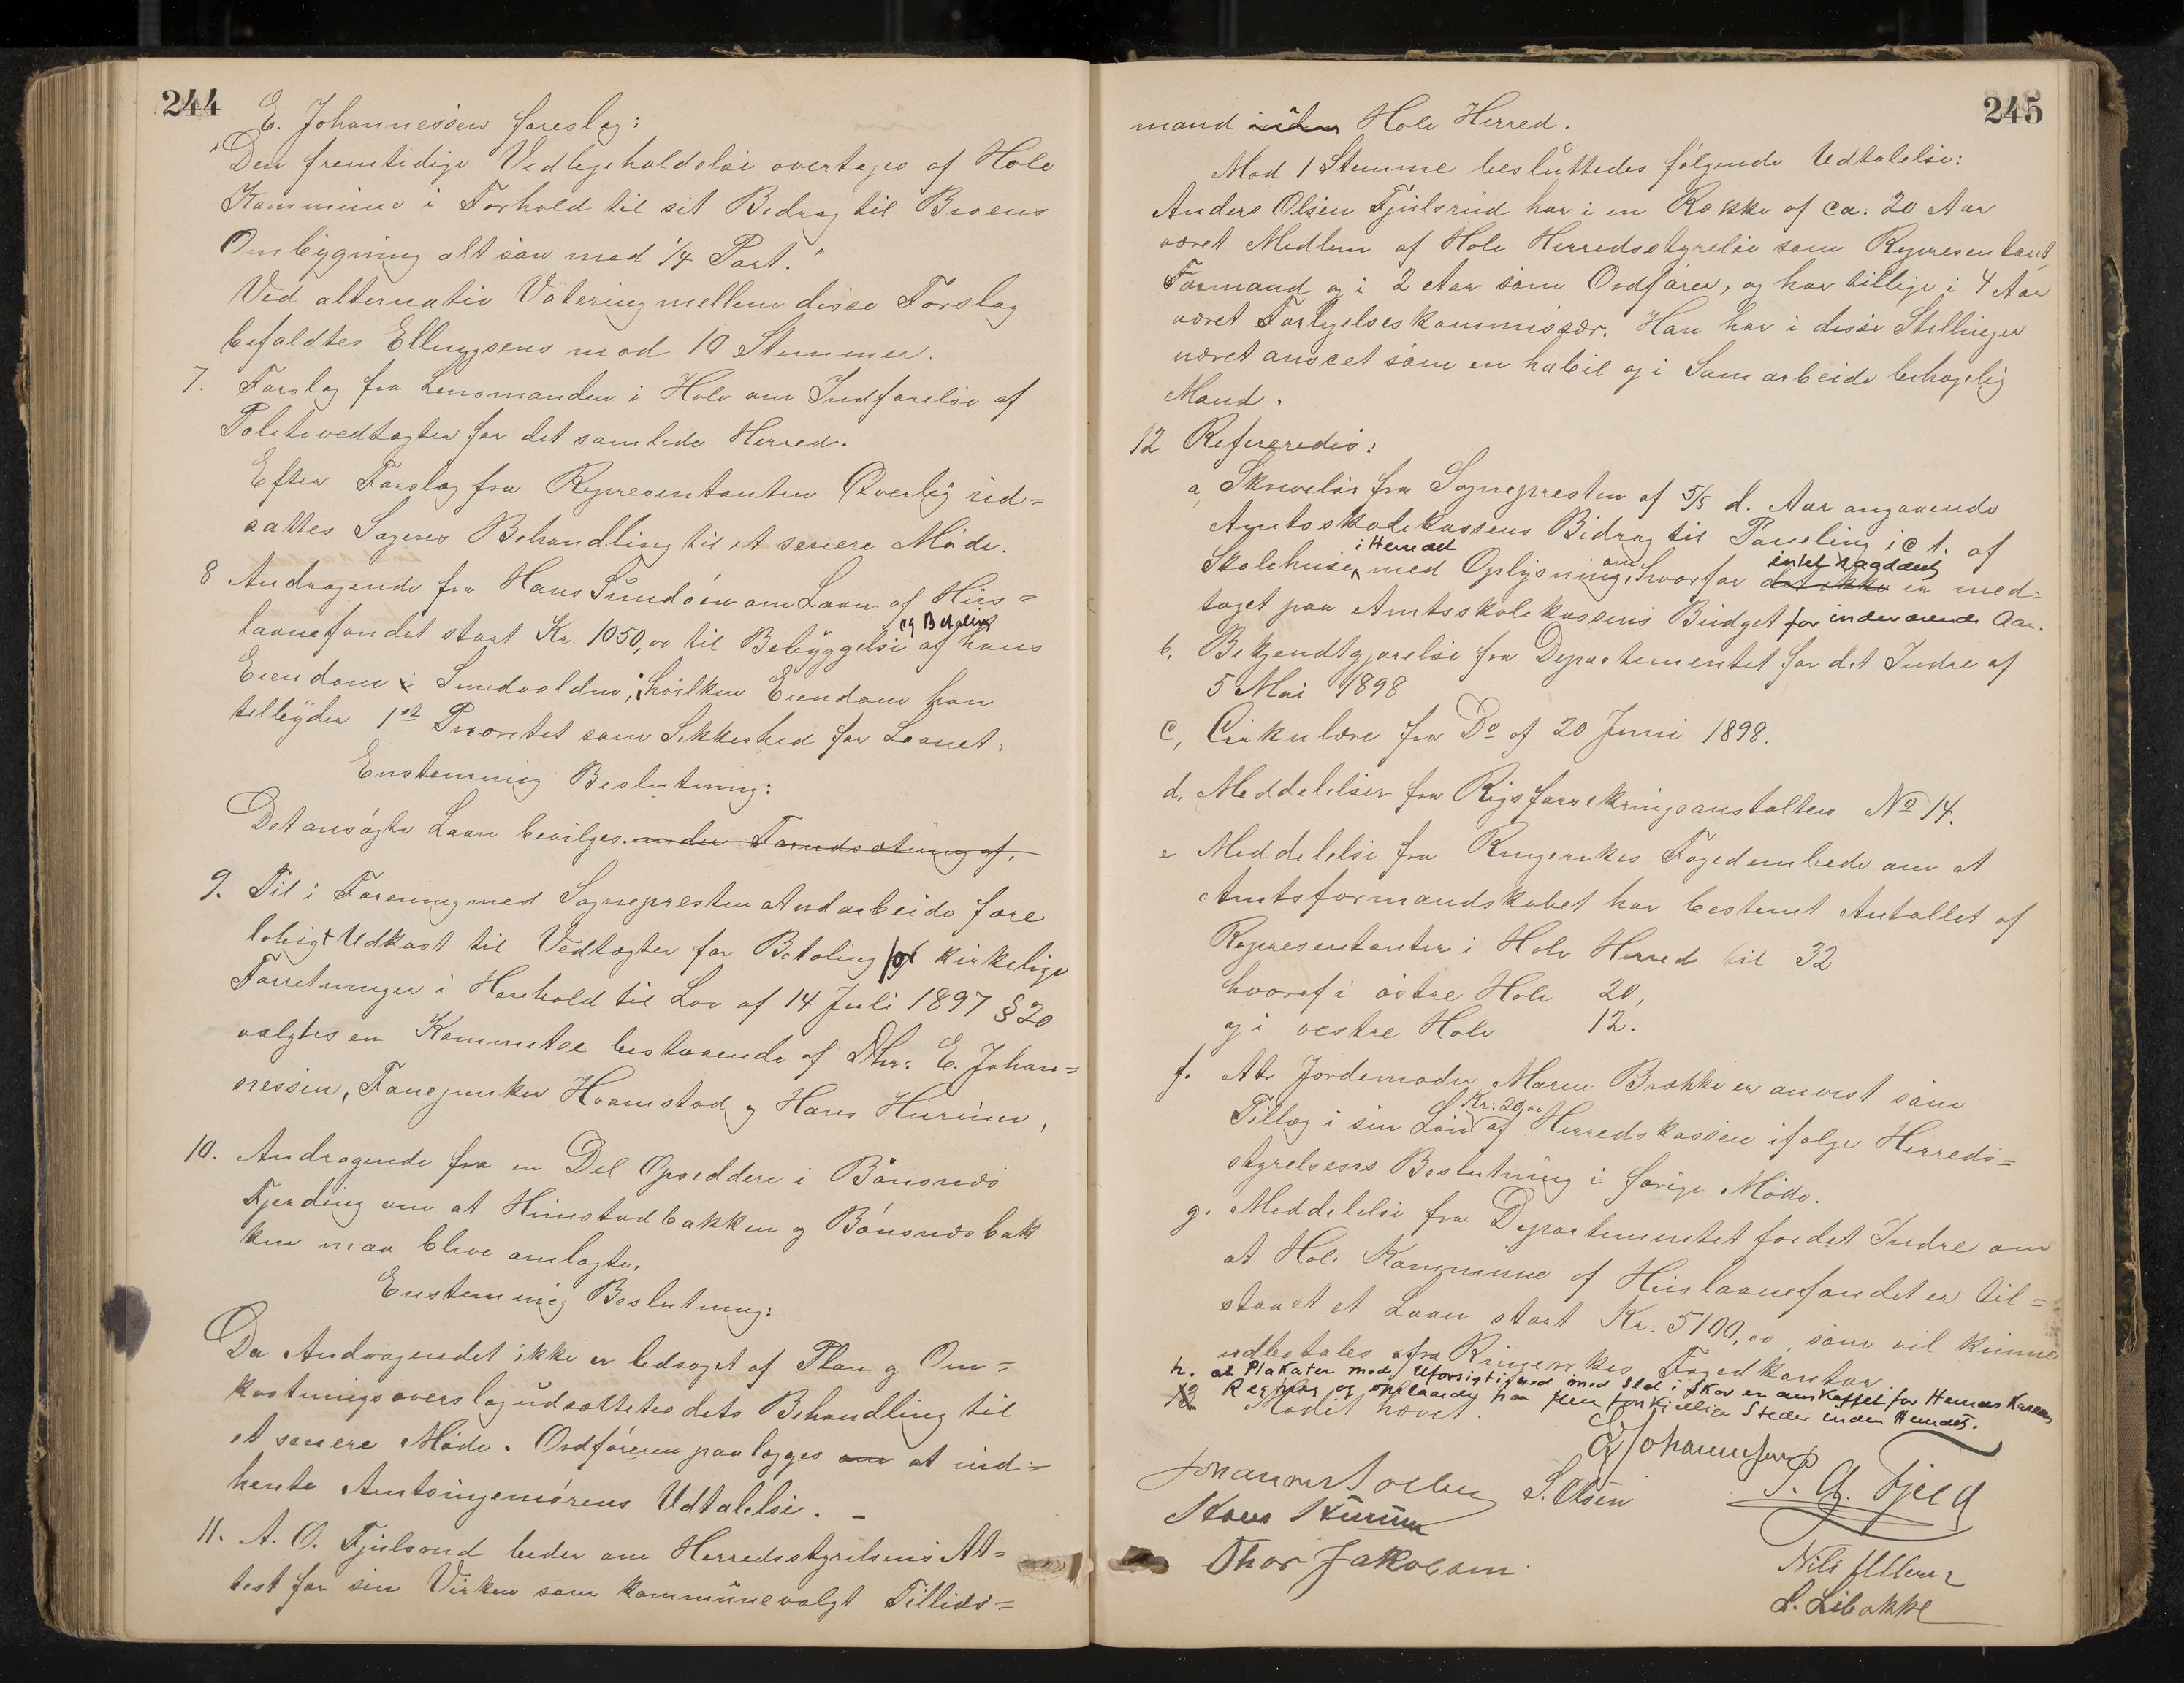 244
E. Johannessen foreslog:
"Den fremtidige Vedligeholdelse overtages af Hole
Kommune i Forhold til sit Bidrag til Broens
Ombygning altsaa med 1/4 Part."
Ved alternativ Votering mellem disse Forslag
bifaldtes Ellingsens mod 10 Stemmer.
7. Forslag fra Lensmanden i Hole om Indførelse af
Politivedtægter for det samlede Herred.
Efter Forslag fra Repræsentanten Øverby ud=
sattes Sagens Behandling til et senere Møde.
8 Andragende fra Hans Sundøen om Laan af Hus=
laanefondet stort Kr. 1050,00 til Bebyggelse og Betaling af hans
Eiendom i Sundvolden, hvilken Eiendom han
tilbyder 1ste Prioritet som Sikkerhed for Laanet.
Enstemmig Beslutning:
Det ansøgte Laan bevilges. under Forudsætning af.
9. Til i Forening med Sognepresten at udarbeide fore
løbigt Udkast til Vedtægter for Betaling for kirkelige
Forretninger i Henhold til Lov af 14 Juli 1897 § 20
valgtes en Kommitee bestaaende af DHrr. E. Johan=
nessen, Fanejunker Hvamstad og Hans Hurum.
10. Andragende fra en Del Opsiddere i Bønsnæs
Fjerding om at Himstadbakken og Bønsnæsbak
ken maa blive omlagte.
Enstemmig Beslutning:
Da Andragendet ikke er ledsaget af Plan og Om=
kostningsoverslag udsættetes dets Behandling til
et senere Møde. Ordføreren paalægges om at ind=
hente Amtsingeniørens Udtalelse. -
11. A. O. Fjulsrud beder om Herredsstyrelsens At=
test for sin Virken som kommunevalgt Tillids=
245
mand Hole Herred.
Mod 1 Stemme besluttedes følgende Udtalelse:
Anders Olsen Fjulsrud har i en Række af ca. 20 Aar
været Medlem af Hole Herredsstyrelse som Repræsentant,
Formand og i 2 Aar som Ordfører, og har tillige i 4 Aar
været Forligelseskommissær. Han har i disse Stillinger
været anseet som en habil og i Samarbeide behagelig
Mand.
12 Refereredes:
a, Skrivelse fra Sognepresten af 5/5 d. Aar angaaende
Amtsskolekassens Bidrag til Paneling i et af
Skolehuse i Herredet med Oplysning om, hvorfor det ikke intet saadant er med=
taget paa Amtsskolekassens Budget for indeværende Aar.
b. Bekjendtgjørelse fra Departementet for det Indre af
5 Mai 1898
c, Cirkulære fra Do af 20 Juni 1898.
d, Meddelelser fra Rigsforsikringsanstalten No 14.
e Meddelelse fra Ringerikes Fogedembede om at
Amtsformandskabet har bestemt Antallet af
Repræsentanter i Hole Herred til 32
hvoraf i østre Hole 20,
og i vestre Hole 12.
f. At Jordemoder Maren Brække er anvist som
Tillæg i sin Løn Kr: 20,00 af Herredskassen ifølge Herreds=
styrelsens Beslutning i forige Møde.
g. Meddelelse fra Departementet for det Indre om
at Hole Kommune af Huslaanefondet er til=
staaet et Laan stort Kr. 5100,00, som vil kunne
udbetales fra Ringerikes Fogedkontor.
h. at Plakater mod Uforsigtighed med Ild i Skov er anskaffet for Herreds Kassens
Regning og opslaaede paa flere forskjellige Steder inden Herredet.
Mødet hævet.
E Johannessen
Johannes Solberg S. Olsen P. G. Fjeld
Hans Hurum
Thor Jakobsen Nils Ullern
L. Libakke